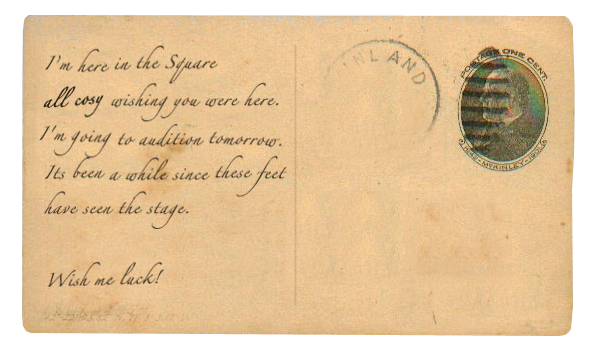 I'm here in the Square
all cosy wishing you were here.
I'm going to audition tomorrow.
Its been a while since these feet
have seen the stage.
Wish me luck!
INLAND
POSTAGE ONE CENT.
McKINLEY